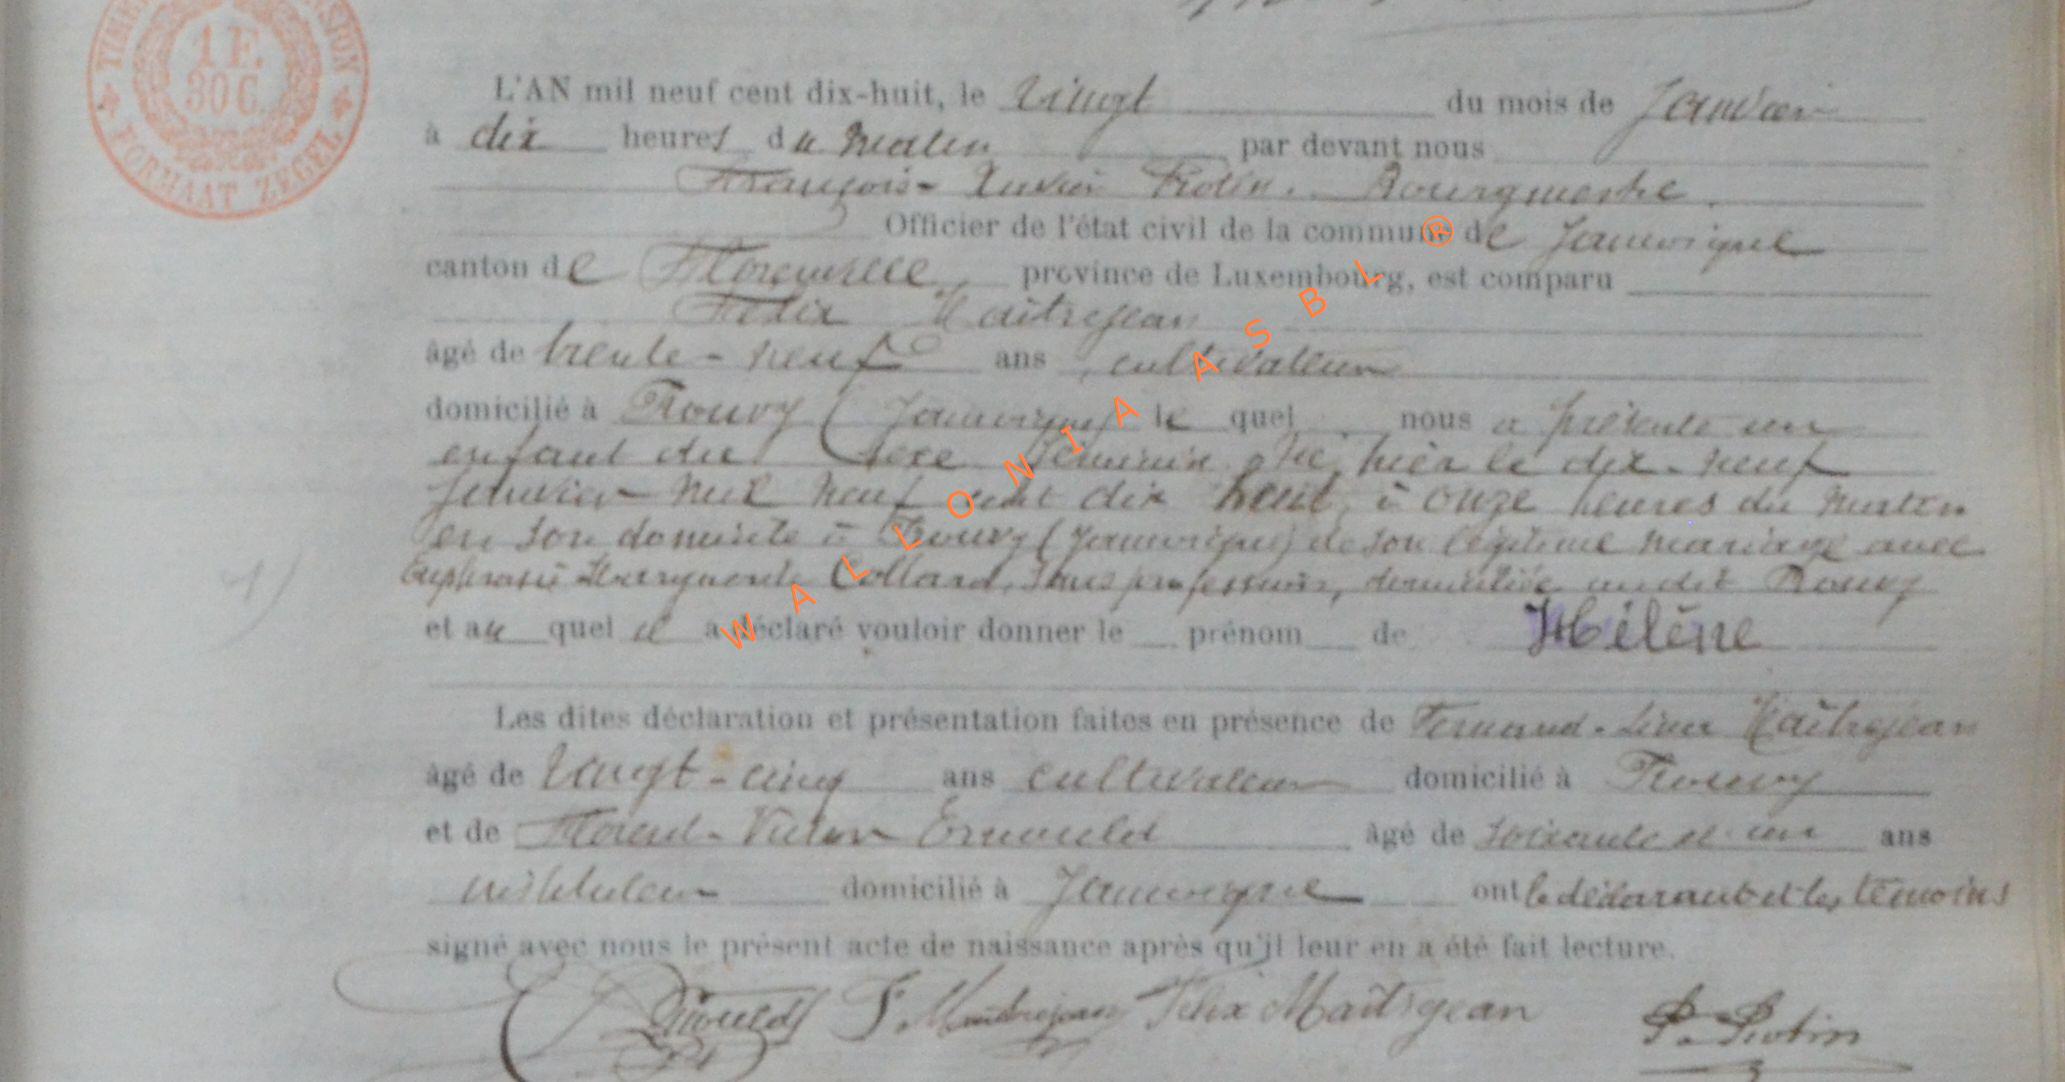 TIMB
SION
1 F.
30 C.
FORMAAT ZEGEL
L'AN mil neuf cent dix-huit, le vingt du mois de Janvier
à dix heures du matin par devant nous
François-Xavier Piotin, Bourgmestre,
Officier de l'état civil de la commune de Jamoigne
canton de Florenville, province de Luxembourg, est comparu
Félix Maîtrejean
âgé de trente-neuf ans, cultivateur
domicilié à Prouvy (Jamoigne) lequel nous a présenté un
enfant du sexe féminin, né hier le dix-neuf
Janvier mil neuf cent dix huit, à onze heures du matin
en son domicile à Prouvy (Jamoigne) de son légitime mariage avec
Euphrasie Marguerite Collard, sans profession, domiciliée audit Prouvy
et auquel il a déclaré vouloir donner le prénom de Hélène
Les dites déclaration et présentation faites en présence de Fernand- Maîtrejean
âgé de vingt-cinq ans cultivateur domicilié à Prouvy
et de Florent-Victor âgé de soixante et un ans
instituteur domicilié à Jamoigne ont le déclarant et les témoins
signé avec nous le présent acte de naissance après qu'il leur en a été fait lecture.
F. Maitrejean Félix Maîtrejean Piotin
1)
WALLONIA ASBL ®